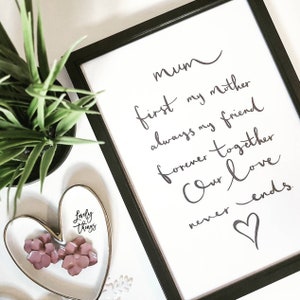 mum
first my mother
always my friend
forever together
Our love
never ends.
lovely
things